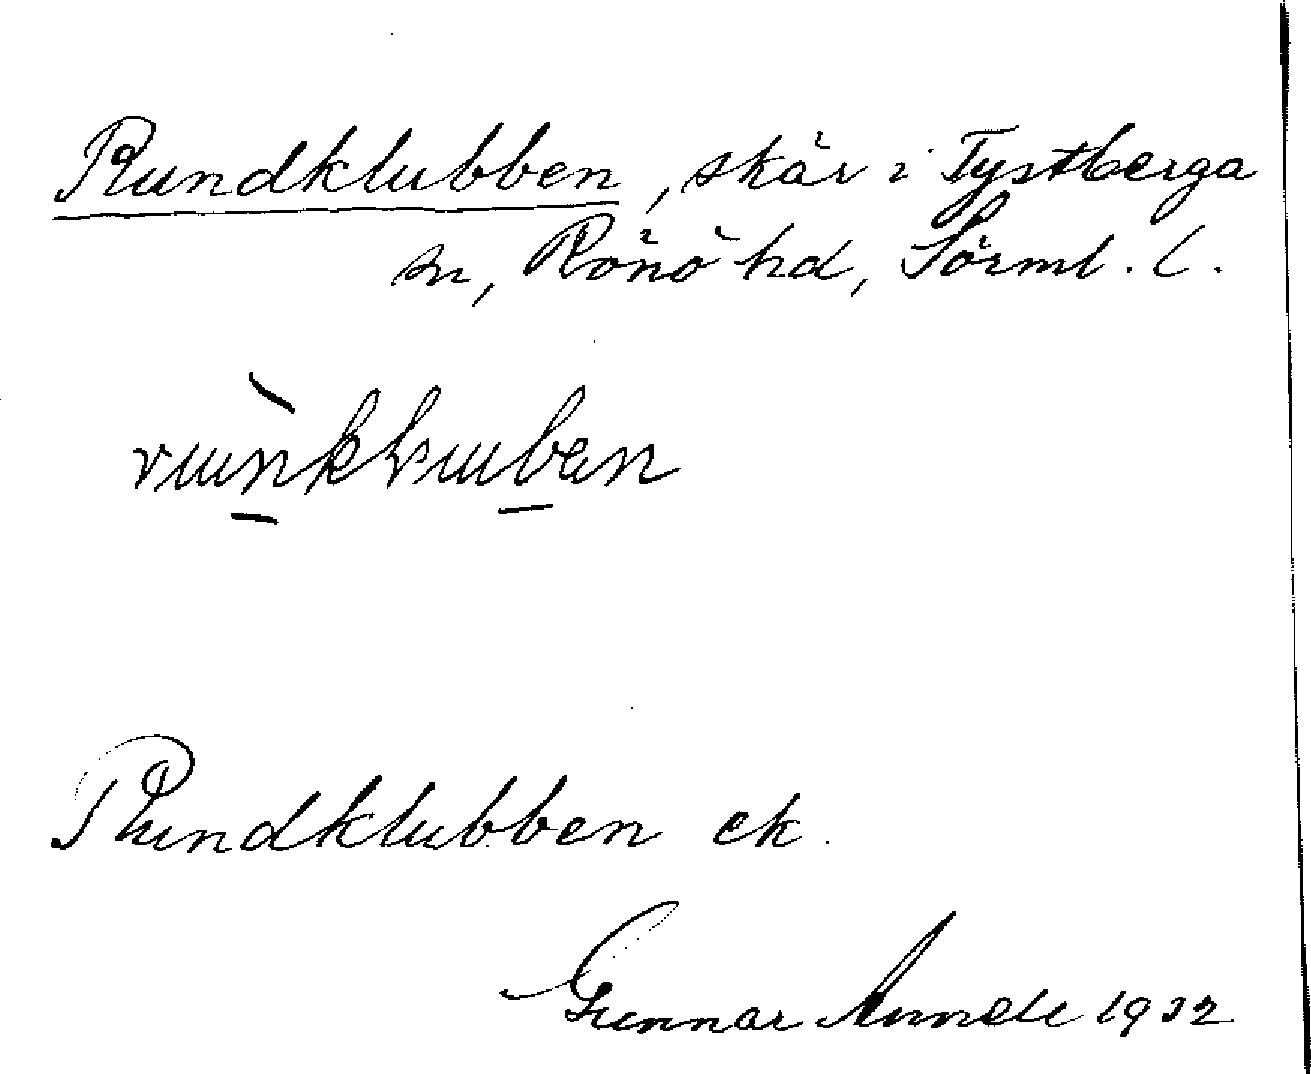 Rundklubben, skär i Tystberga
sn, Rönö hd, Sörml. l.
Rundklubben ek.
Gunnar 1932